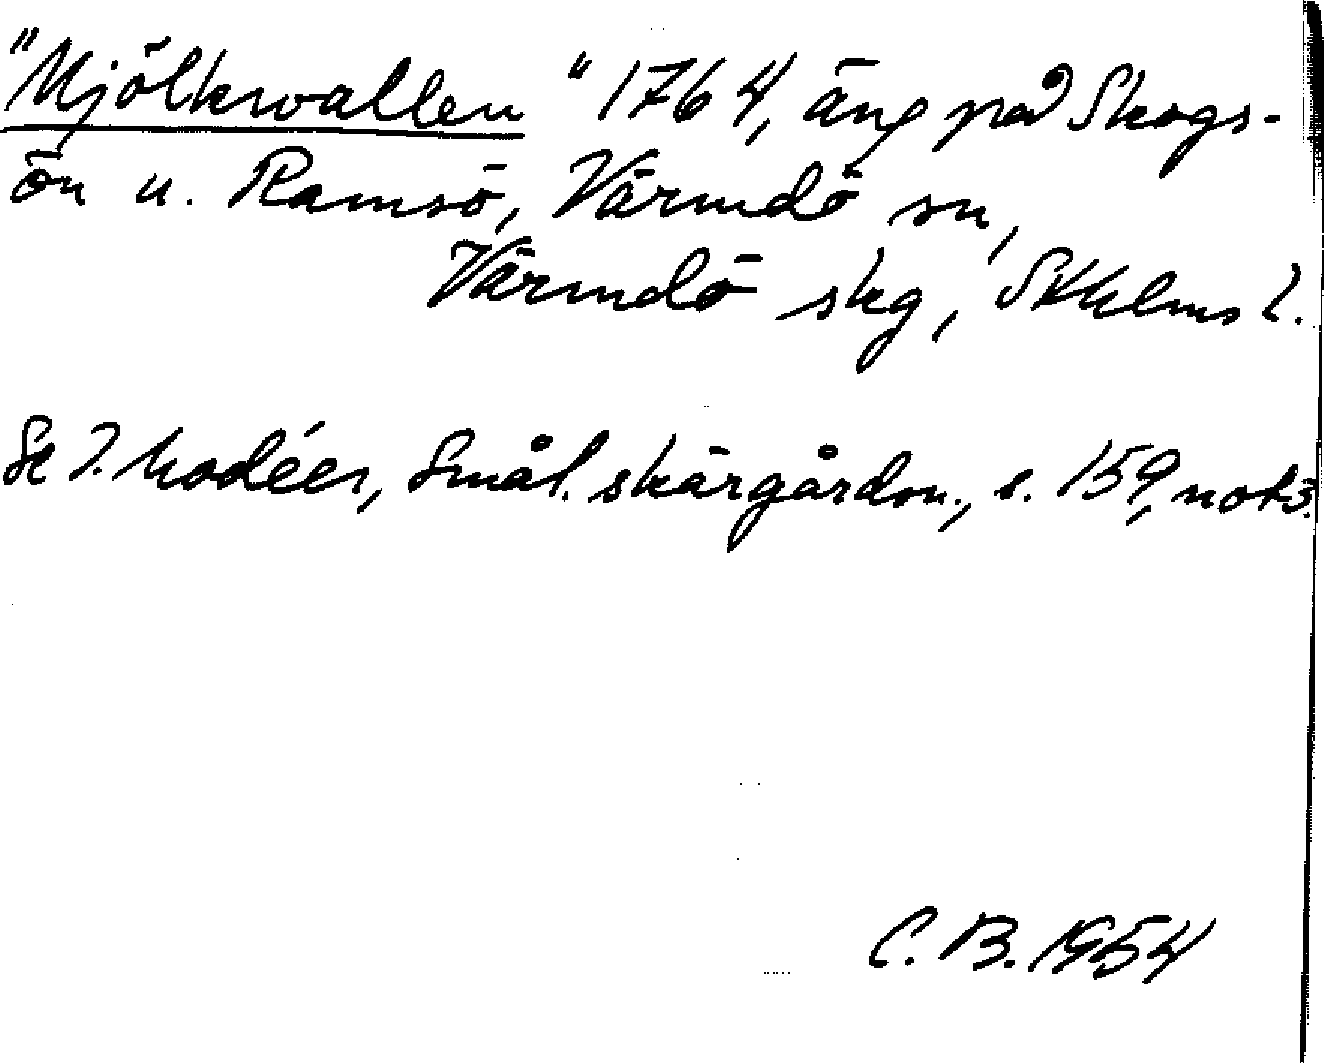 "Mjölkwallen" 1764, äng på Skogs-
ön u. Ramsö, Värmdö sn,
Värmdö skg, Sthlms l.
Se I. Modéer, Smål. skärgårdsn., s. 159, not 3.
C. B. 1954